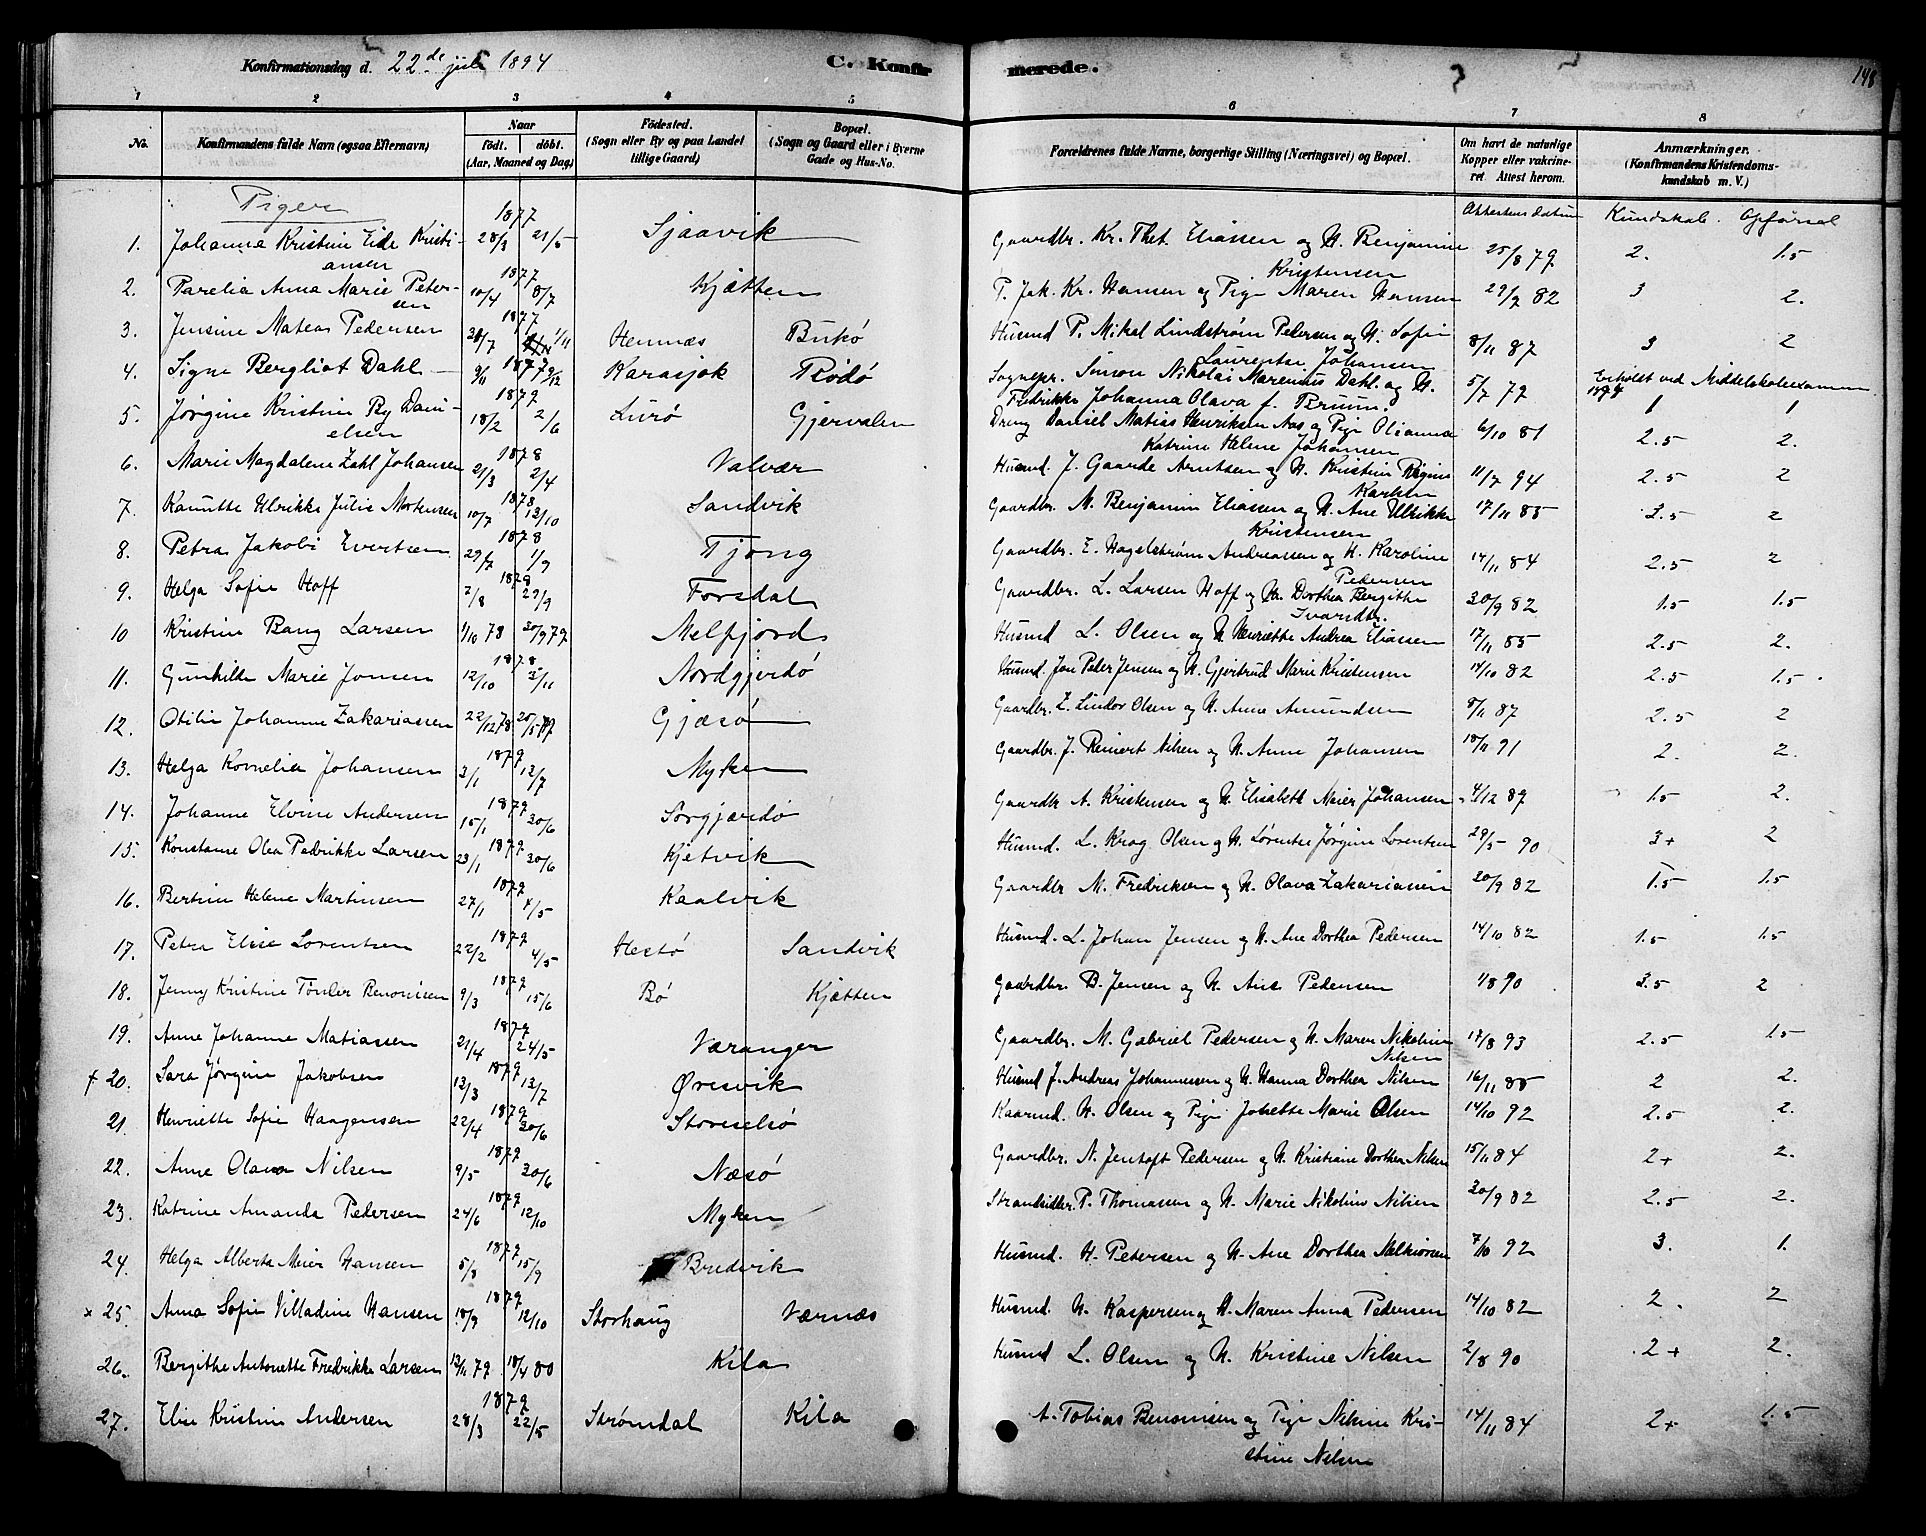 Konfirmationsdag d. 22de juli 1894
C. Konfirmerede.
148
1 2 3 4 5 6 7 8
No. Konfirmandens fulde Navn (ogsaa Efternavn) Naar födt. döbt. (Aar, Maaned og Dag) Födested. (Sogn eller By og paa Landet tillige Gaard) Bopæl. (Sogn og Gaard eller i Byerne Gade og Hus-No. Forældrenes fulde Navne, borgerlige Stilling (Næringsvei) og Bopæl. Om havt de naturlige Kopper eller vakcineret Attest herom. Anmærkninger. (Konfirmandens Kristendomskundskab m. V.)
Piger Attestens datum Kundskab. Opførsel
1. Johanna Kristine Eide Kristiansen 1877 28/3 21/5 Sjaavik Gaardbr. Kr. Thet. Eliassen og H. Benjamine Kristensen 25/8 79 2. 1.5
2. Parelia Anna Marie Petersen 1877 10/4 8/7 Kjætten P. Jak. Kr. Hansen og Pige Maren Hansen 29/9 82 3 2.
3. Jensine Mateas Pedersen 1877 31/7 1/11 Hemnæs Bukö Husmd P. Mikal Lindstrøm Pedersen og H. Sofie Laurentse Johansen 8/11 87 3 2
4. Signe Bergliot Dahl 1877 9/11 9/12 Karasjok Rödö Sognepr. Simon Nikolai Marenius Dahl og H. Fredrikke Johanna Olava f. Bruun. 5/7 79 Erholdt ved Middelskoleexamen 1 1
5. Jørgine Kristine By Danielsen 1879 18/2 2/6 Lurø Gjervalen Dreng Daniel Matias Henriksen Aas og Pige Olianna Katrine Helene Johansen 6/10 81 2.5 2.
6. Marie Magdalene Zahl Johansen 1878 21/3 2/4 Valvær Husmd. J. Gaarde Arntsen og H. Kristine Regine Karlsen 11/7 94 2.5 2
7. Kanutte Ulrikke Julie Mortensen 1878 10/7 13/10 Sandvik Gaardbr. M. Benjamin Eliassen og H. Ane Ulrikke Kristensen 17/11 85 2.5 2
8. Petra Jakobi Evertsen 1878 29/7 1/9 Tjong Gaardbr. E. Hagelstrøm Andreassen og H. Karoline Pedersen 14/11 84 2.5 2
9. Helga Sofie Hoff 1878 7/8 29/9 Forsdal Gaardbr. L. Larsen Hoff og H. Dorthea Bergithe Ivarsdtr. 30/9 82 1.5 1.5
10 Kristine Bang Larsen 1/10 78 20/9 79 Melfjord Husmd L. Olsen og H. Henriette Andrea Eliassen 17/11 85 2.5 2.
11. Gunhilde Marie Jonsen 1878 12/10 3/11 Nordgjerdö Husmd. Jon Peter Jensen og H. Gjertrud Marie Kristensen 14/10 82 2.5 1.5
12. Otilie Johanna Zakariassen 22/12 78 25/5 79 Gjæsö Gaardbr. Z. Lindor Olsen og H. Anne Amundsen 8/11 87 2.5 2
13. Helga Kornelia Johansen 1879 3/1 13/7 Myken Gaardbr. J. Reinert Nilsen og H. Anne Johansen 18/11 91 2. 2.
14. Johanne Elvine Andersen 1879 15/1 30/6 Sörgjærdö Gaardbr A. Kristensen og H. Elisabeth Meier Johansen 4/12 89 1.5 2.
15. Konstanse Olea Pedrikke Larsen 1879 23/1 30/6 Kjetvik Husmd. L. Krog Olsen og H. Lørentse Jørgine Lorentsen 29/5 90 3+ 2
16. Bertine Helene Martinsen 1879 27/1 4/5 Kaalvik Gaardbr M. Fredriksen og H. Olava Zakariassen 20/9 82 1.5 1.5
17. Petra Elise Lorentsen 1879 22/2 4/5 Hestö Sandvik Husmd. L. Johan Jensen og H. Ane Dorthea Pedersen 14/10 82 1.5 1.5
18. Jenny Kristine Tönder Benonisen 1879 9/3 15/6 Bö Kjætten Gaardbr. B. Jensen og H. Ane Pedersen 1/8 90 3.5 2
19. Anne Johanne Matiassen 1879 21/4 24/5 Væranger Gaardbr. M. Gabriel Pedersen og H. Maren Nikoline Nilsen 17/8 93 2.5 1.5
+ 20. Sara Jørgine Jakobsen 1879 13/3 13/7 Øresvik Husmd J. Andreas Johannesen og H. Hanna Dorthea Nilsen 16/11 88 2 2.
21. Henriette Sofie Haagensen 1879 22/4 30/6 Storselsö Kaarmd. H. Olsen og Pige Johette Marie Olsen 14/10 92 2.5 2.
22. Anne Olava Nilsen 1879 9/5 30/6 Næsö Gaardbr. N. Jentoft Pedersen og H. Kristiane Dorthea Nilsen 15/11 84 2+ 2.
23. Katrine Amanda Pedersen 1879 24/6 12/10 Myken Strandsidder. P. Thomassen og H. Marie Nikoline Nilsen 30/9 82 2.5 2.
24. Helga Alberta Meier Hansen 1879 5/8 15/9 Bredvik Husmd. H. Petersen og H. Ane Dorthea Melkiorsen 7/10 92 3. 1.
x 25. Anna Sofie Villadine Hansen 1879 18/9 12/10 Storhaug Værnæs Husmd. H. Kaspersen og H. Maren Anna Pedersen 14/10 82 2. 2
26. Bergithe Antonette Fredrikke Larsen 13/11 79 18/4 80 Kila Husmd L. Olsen og H. Kristine Nilsen 2/8 90 2+ 2.
27. Elise Kristine Andersen 1879 28/3 22/5 Strömdal Kila A. Tobias Benonisen og Pige Nekine Kristine Nilsen 14/11 84 2+ 1.5